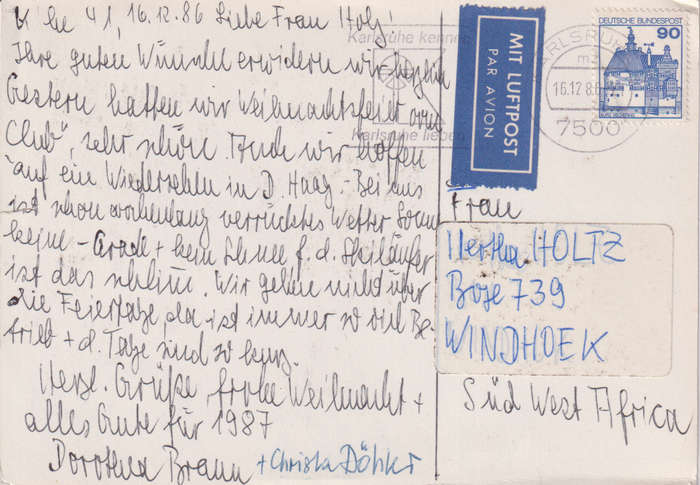 K'he 41, 16.12.86 Liebe Frau Holz!
Ihre guten Wünsche erwidern wir herzlich
Gestern hatten wir Weihnachtsfeier
Club", sehr schön. Auch wir hoffen
auf ein Wiedersehen in D. Haag. - Bei uns
ist schon wochenlang verrücktes Wetter Sonne
keine - Grade + kein Schnee f. d. Skiläufer
ist das schlimm. Wir gehen nicht über
die Feiertage, da ist immer so viel Be-
trieb + d. Tage sind so kurz.
Herzl. Grüße, frohe Weihnacht +
alles Gute für 1987
Dorothea Braun + Christa
Karlsruhe kennen
Karlsruhe lieben
MIT LUFTPOST
PAR AVION
KARLSRUHE
16.12.86
7500
DEUTSCHE BUNDESPOST
90
Frau
Hertha HOLTZ
Boxe 739
WINDHOEK
Süd West Africa